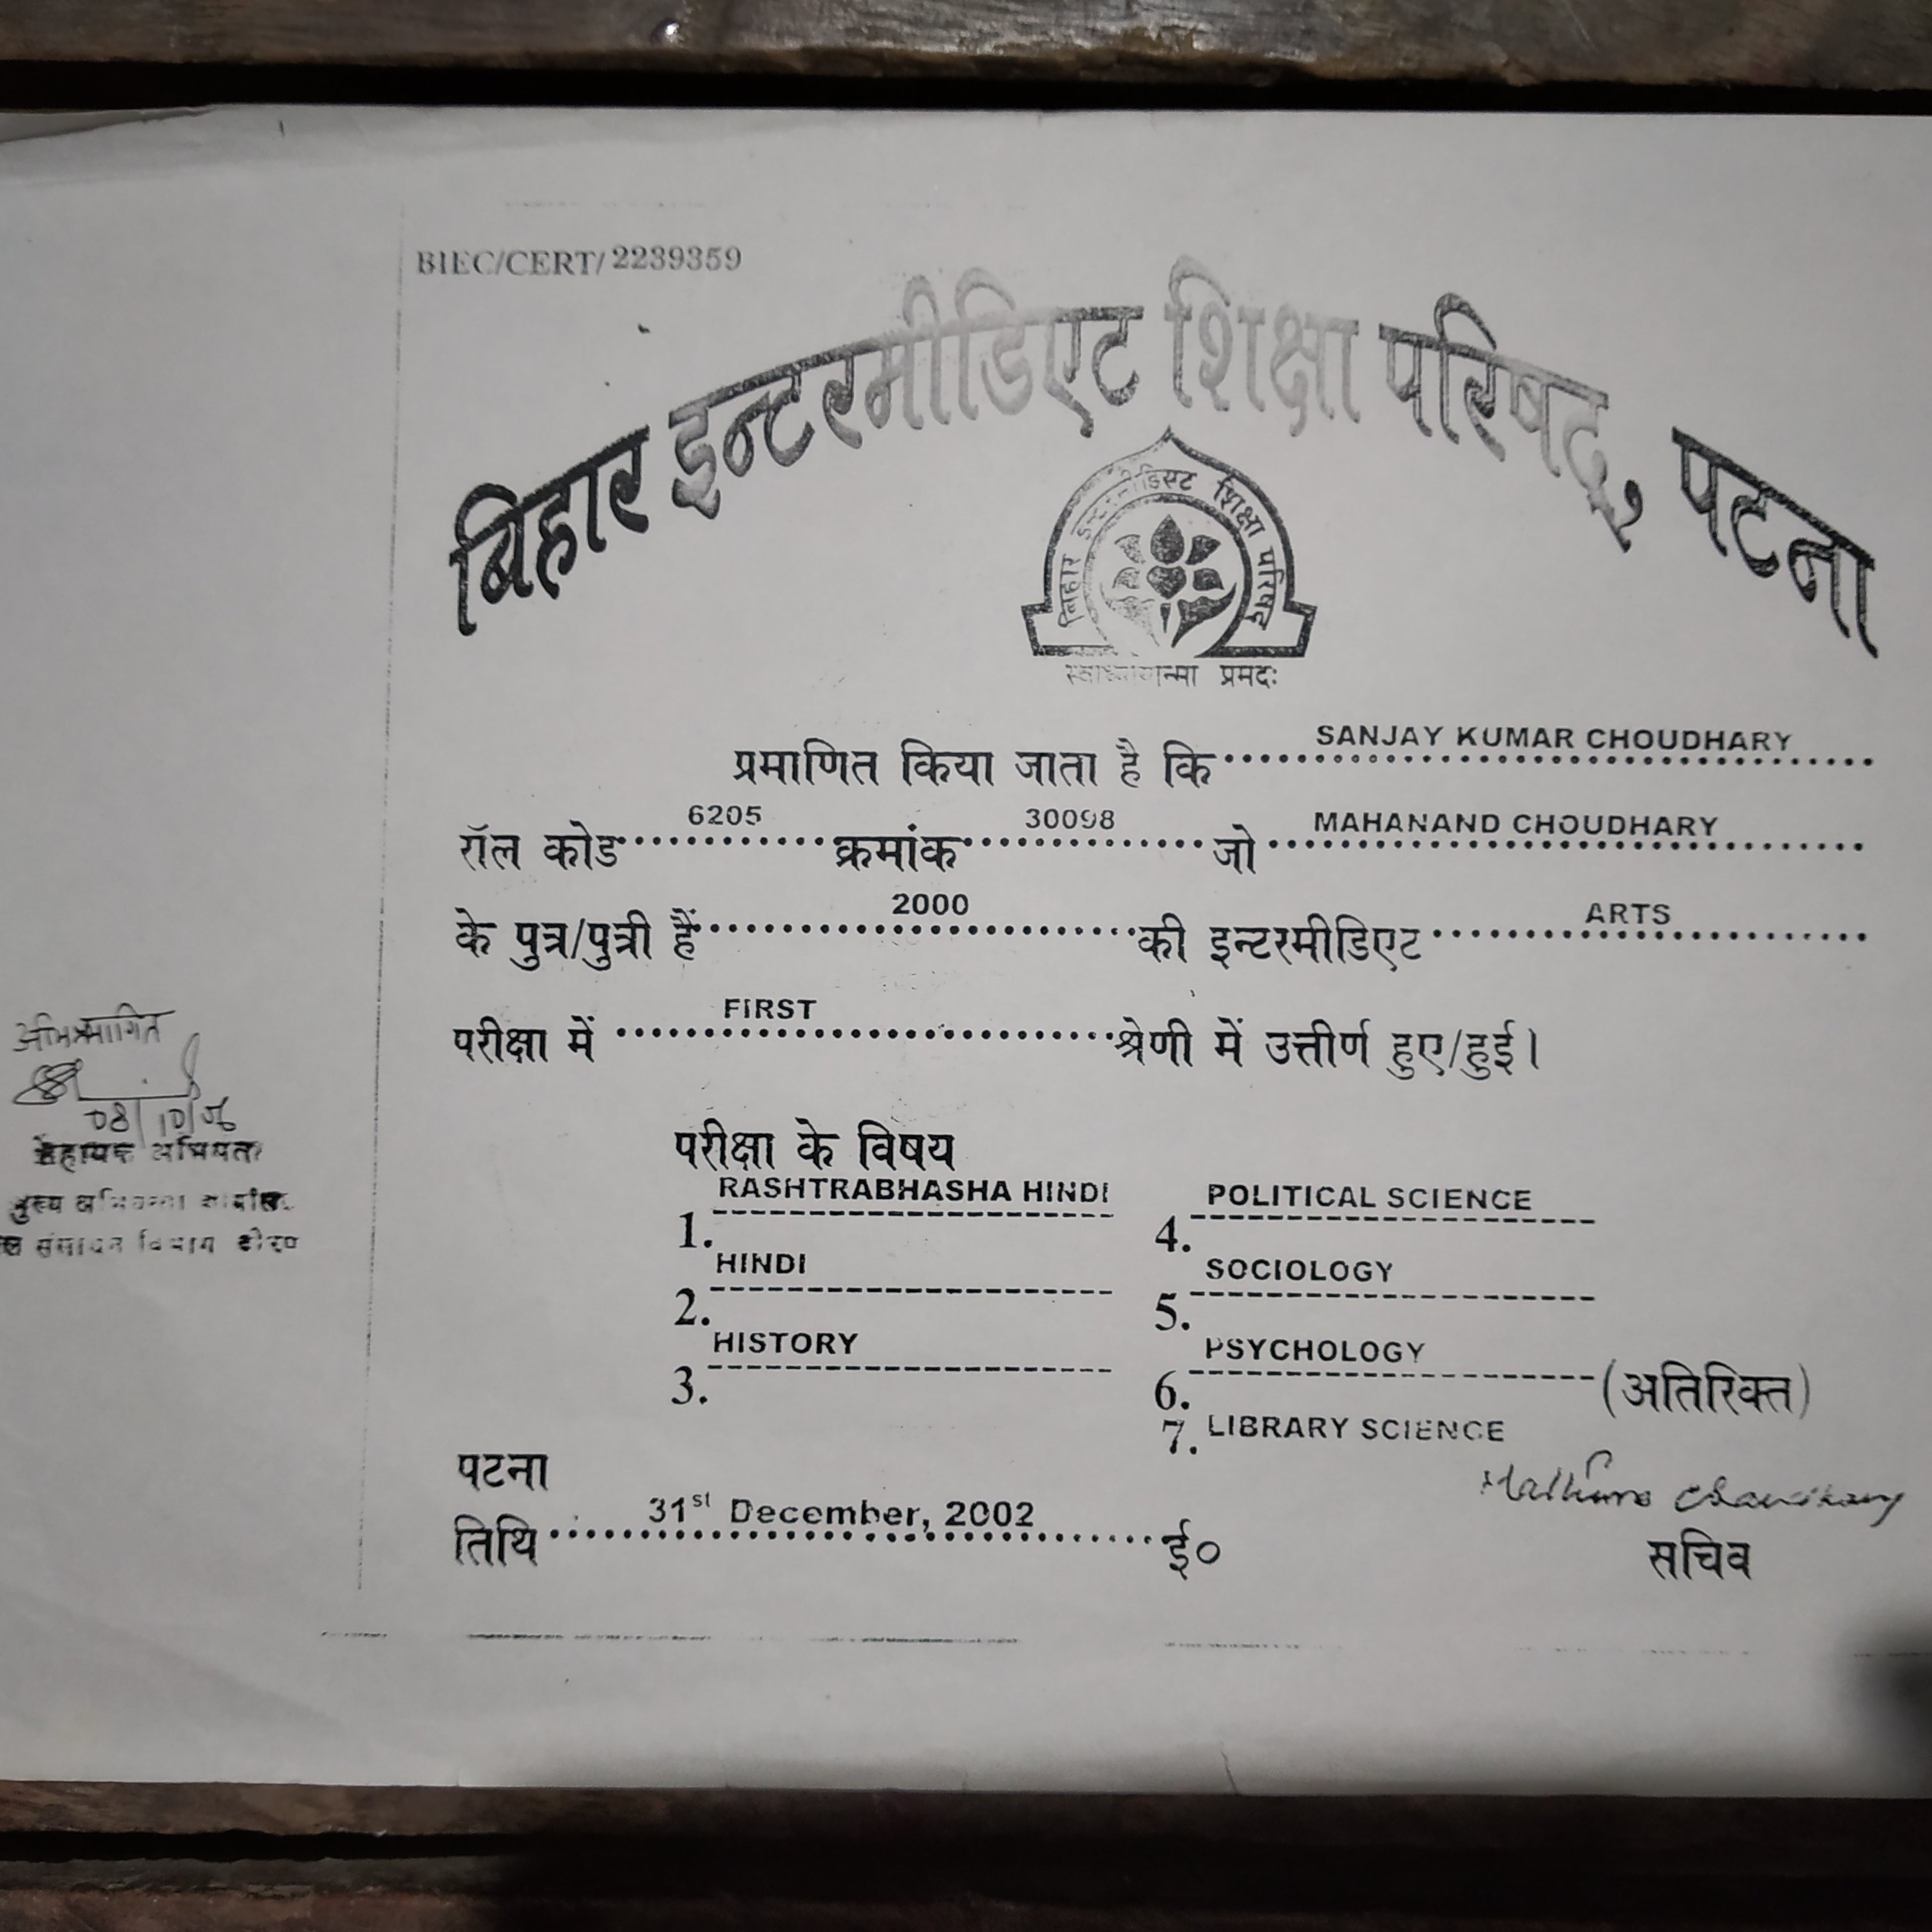 BIEC/CERT/ 2239359
बिहार इन्टरमीडिएट शिक्षा परिषद्, पटना
बिहार इन्टरमीडिएट शिक्षा परिषद
स्वाध्यायान्मा प्रमदः
प्रमाणित किया जाता है कि SANJAY KUMAR CHOUDHARY
रॉल कोड 6205 क्रमांक 30098 जो MAHANAND CHOUDHARY
के पुत्र/पुत्री हैं 2000 की इन्टरमीडिएट ARTS
परीक्षा में FIRST श्रेणी में उत्तीर्ण हुए/हुई।
अभिप्रमाणित
08/10/06
सहायक अभियंता
मुख्य
परीक्षा के विषय
1. RASHTRABHASHA HINDI
2. HINDI
3. HISTORY
4. POLITICAL SCIENCE
5. SOCIOLOGY
6. PSYCHOLOGY (अतिरिक्त)
7. LIBRARY SCIENCE
पटना
तिथि 31st December, 2002 ई०
सचिव